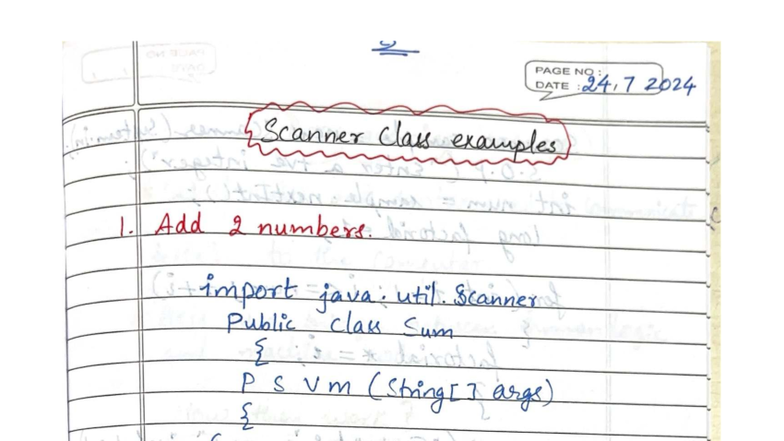 PAGE NO :
DATE : 24.7 2024
Scanner class examples
1. Add 2 numbers.
import java.util.Scanner
Public class Sum
{
P S V m (String[] args)
{